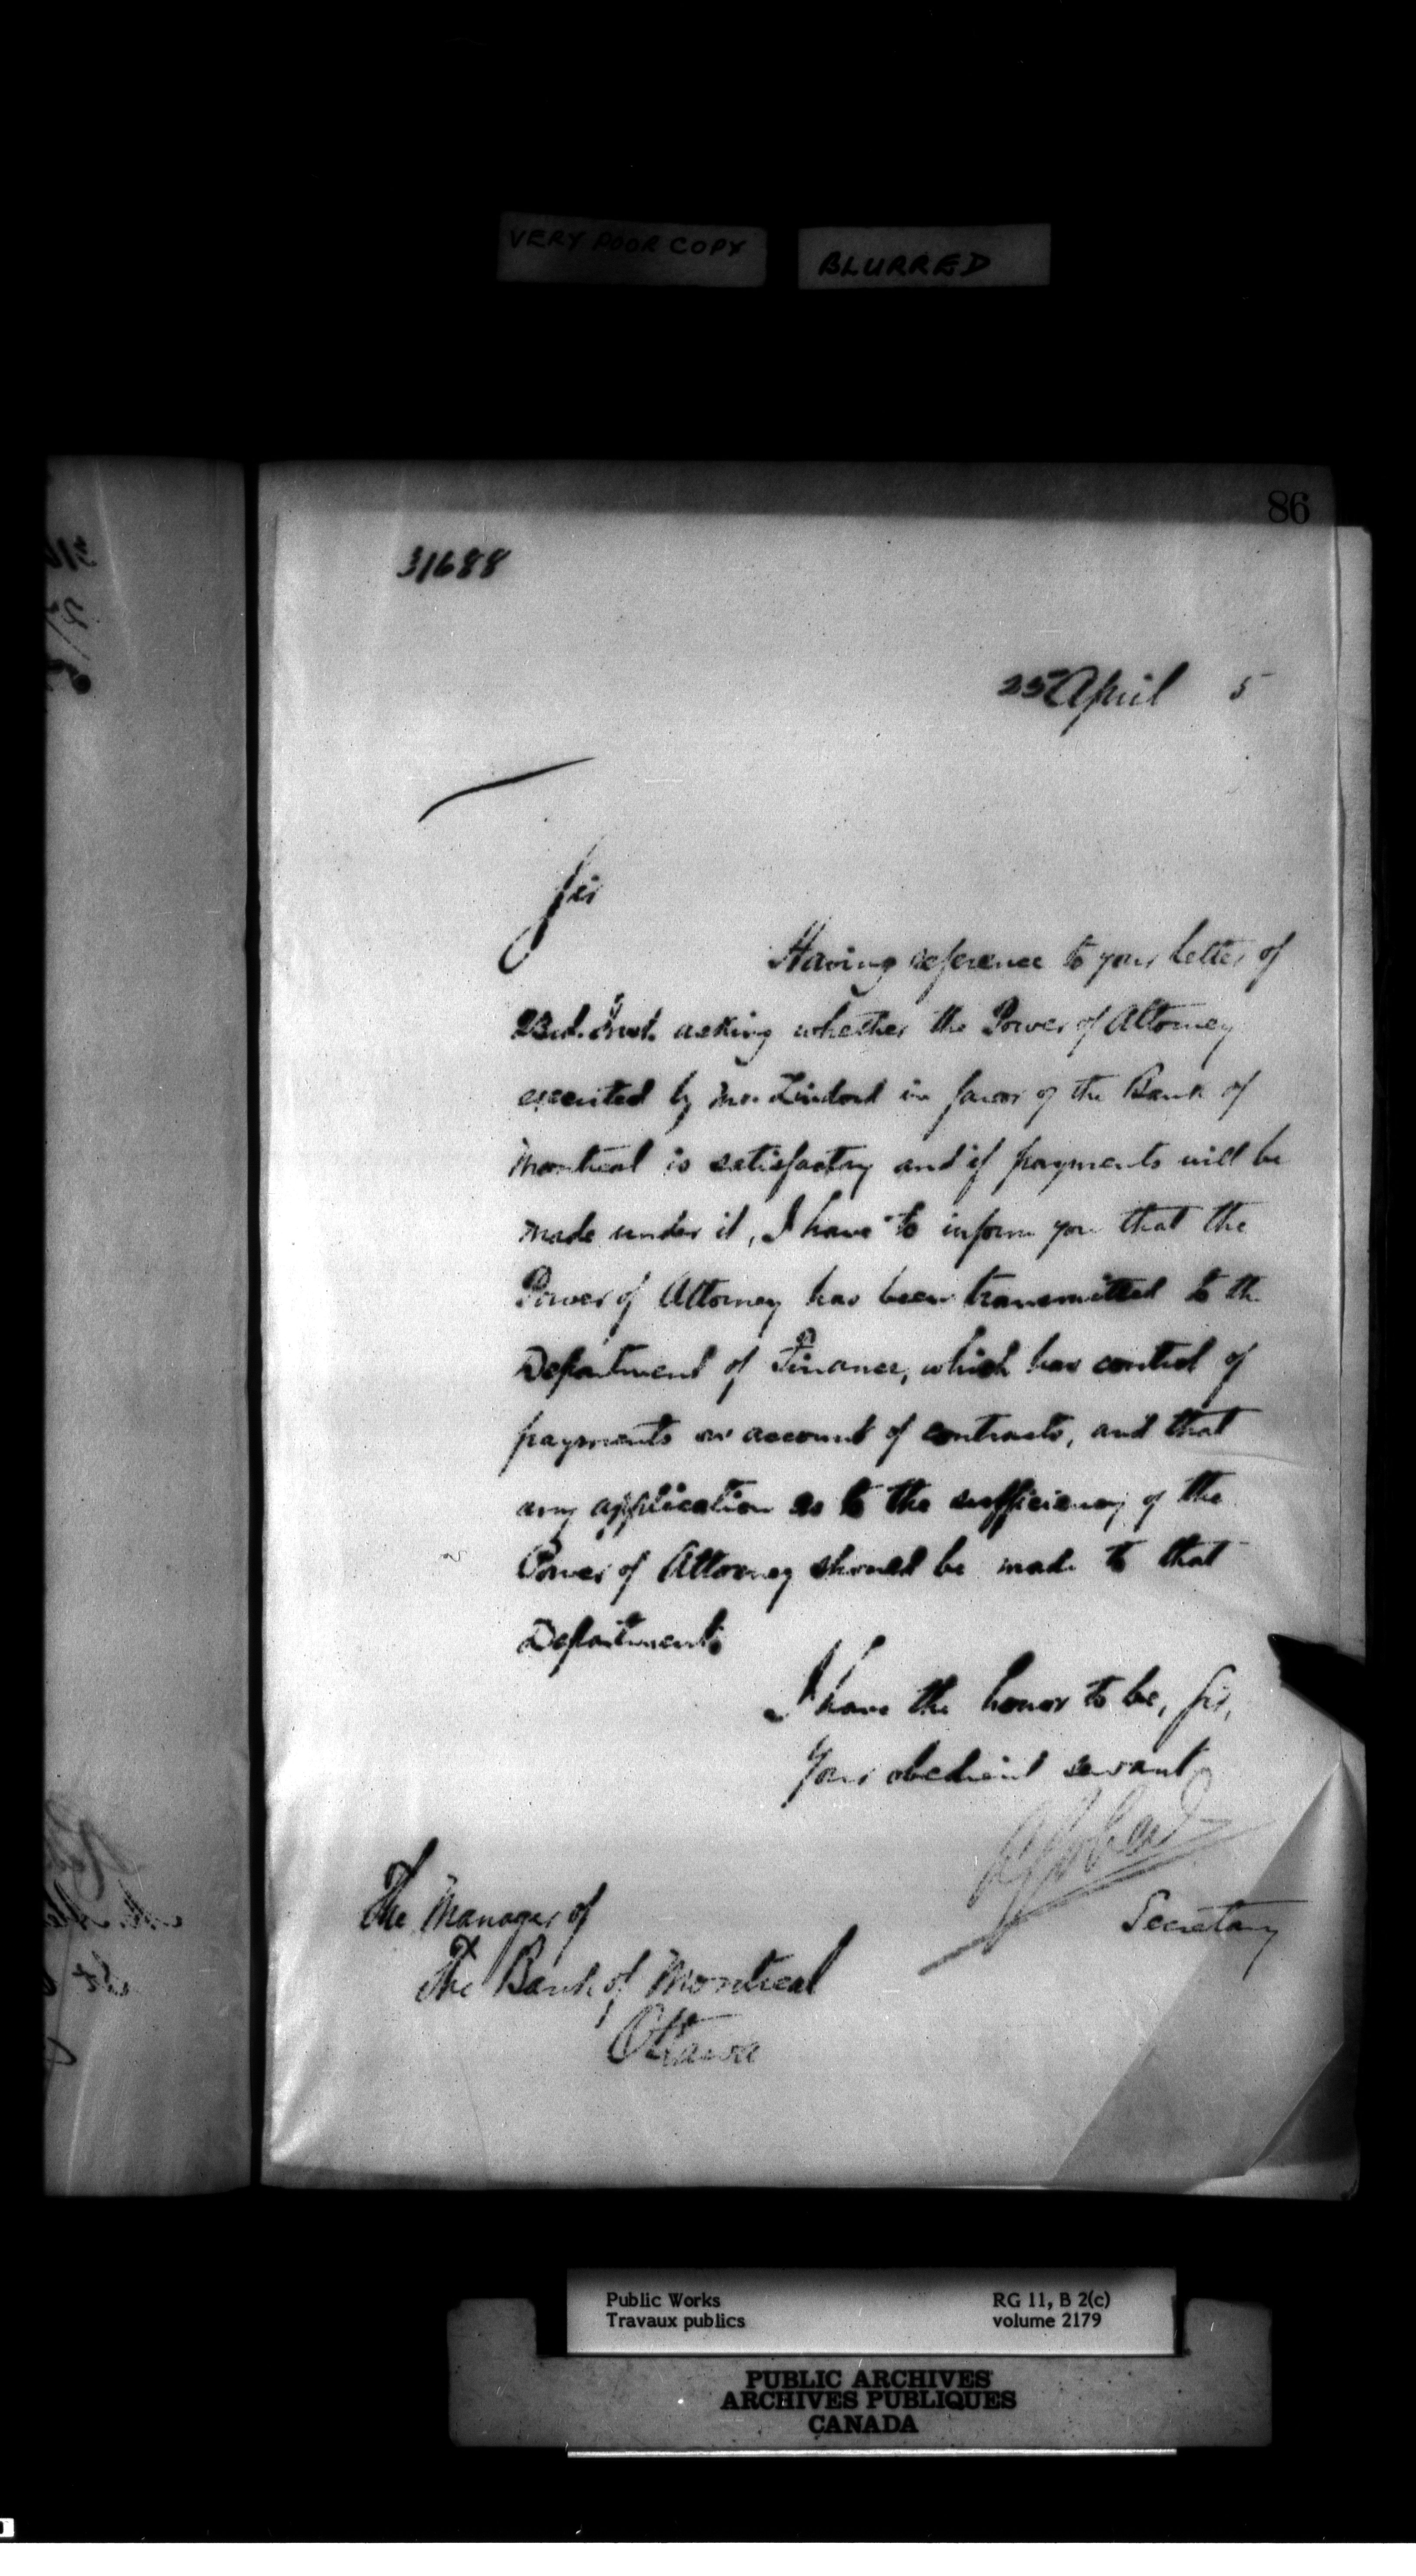 VERY POOR COPY
BLURRED
86
31688
25 April 5
Sir
Having reference to your letter of
23rd. Inst. asking whether the Power of Attorney
executed by Mr. in favor of the Bank of
Montreal is satisfactory and if payments will be
made under it, I have to inform you that the
Power of Attorney has been transmitted to the
Department of Finance, which has control of
payments on account of contracts, and that
any application as to the sufficiency of the
Power of Attorney should be made to that
Department.
I have the honor to be, Sir,
Your obedient servant
Secretary
The Manager of
The Bank of Montreal
Ottawa
Public Works
Travaux publics
RG 11, B 2(c)
volume 2179
PUBLIC ARCHIVES
ARCHIVES PUBLIQUES
CANADA